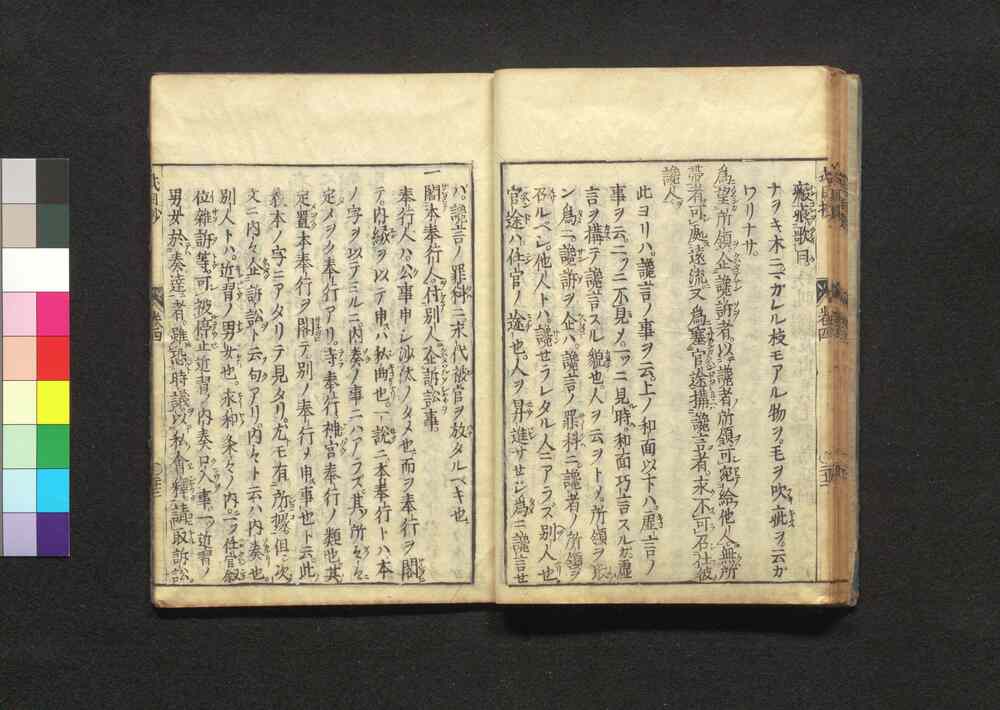 癡痕歌曰
ナヲキ木ニマガレル枝モアル物ヲ毛ヲ吹疵ヲ云ガ
ワリナサ
為望所領企讒訴者以讒者所領可宛給他人無所
帯者可処遠流又為塞官途搆讒言者永不可召仕彼
讒人
此ヨリハ讒言ノ事ヲ云上ノ和面以下ハ虚言ノ
事ヲ云ニツニ不見ノ一ツニ見時和面巧言スルガ虚
言ヲ搆テ讒言スル貌也人ヲ云ヲトメ所領ヲ取
ン為ニ讒訴ヲ企バ讒言ノ罪科ニ讒者ノ所領ヲ
召ルベシ他人トハ讒セラレタル人ニアラズ別人也
官途ハ任官ノ途也人ヲ昇進サセジ為ニ讒言セ
バ讒言ノ罪科ニ永代被官ヲ放タルベキ也
一閣本奉行人付別人企訴訟事
奉行人ハ公事申シ沙汰ノタメ也而ヲ奉行ヲ閣
テ内縁ヲ以テ申ハ私曲也一説ニ本奉行トハ本
ノ字ヲ以テミルニ内奏ノ事ニハアラズ其所々々
定メヲク奉行アリ寺奉行神宮奉行ノ類也其
定置本奉行ヲ閣テ別ノ奉行メ申事也ト云此
義本ノ字ニアタリテ見タリ尤モ有所據但次
文ニ内々企訴訟ト云句アリ内々ト云ハ内奏也
別人トハ近習ノ男女也求和条々ノ内一ツ任官叙
位雑訴等可被停止近習ノ内奏口入事一ツ近習ノ
男女於奏達者雖恐時議以私會釋請取訴訟
卷四